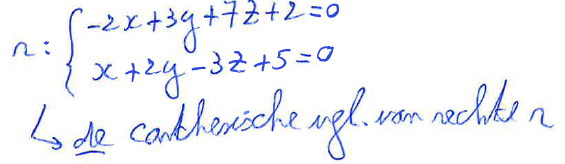 r: { -2x+3y+7z+2=0
x+2y-3z+5=0
↳ de carthesische vgl. van rechte r